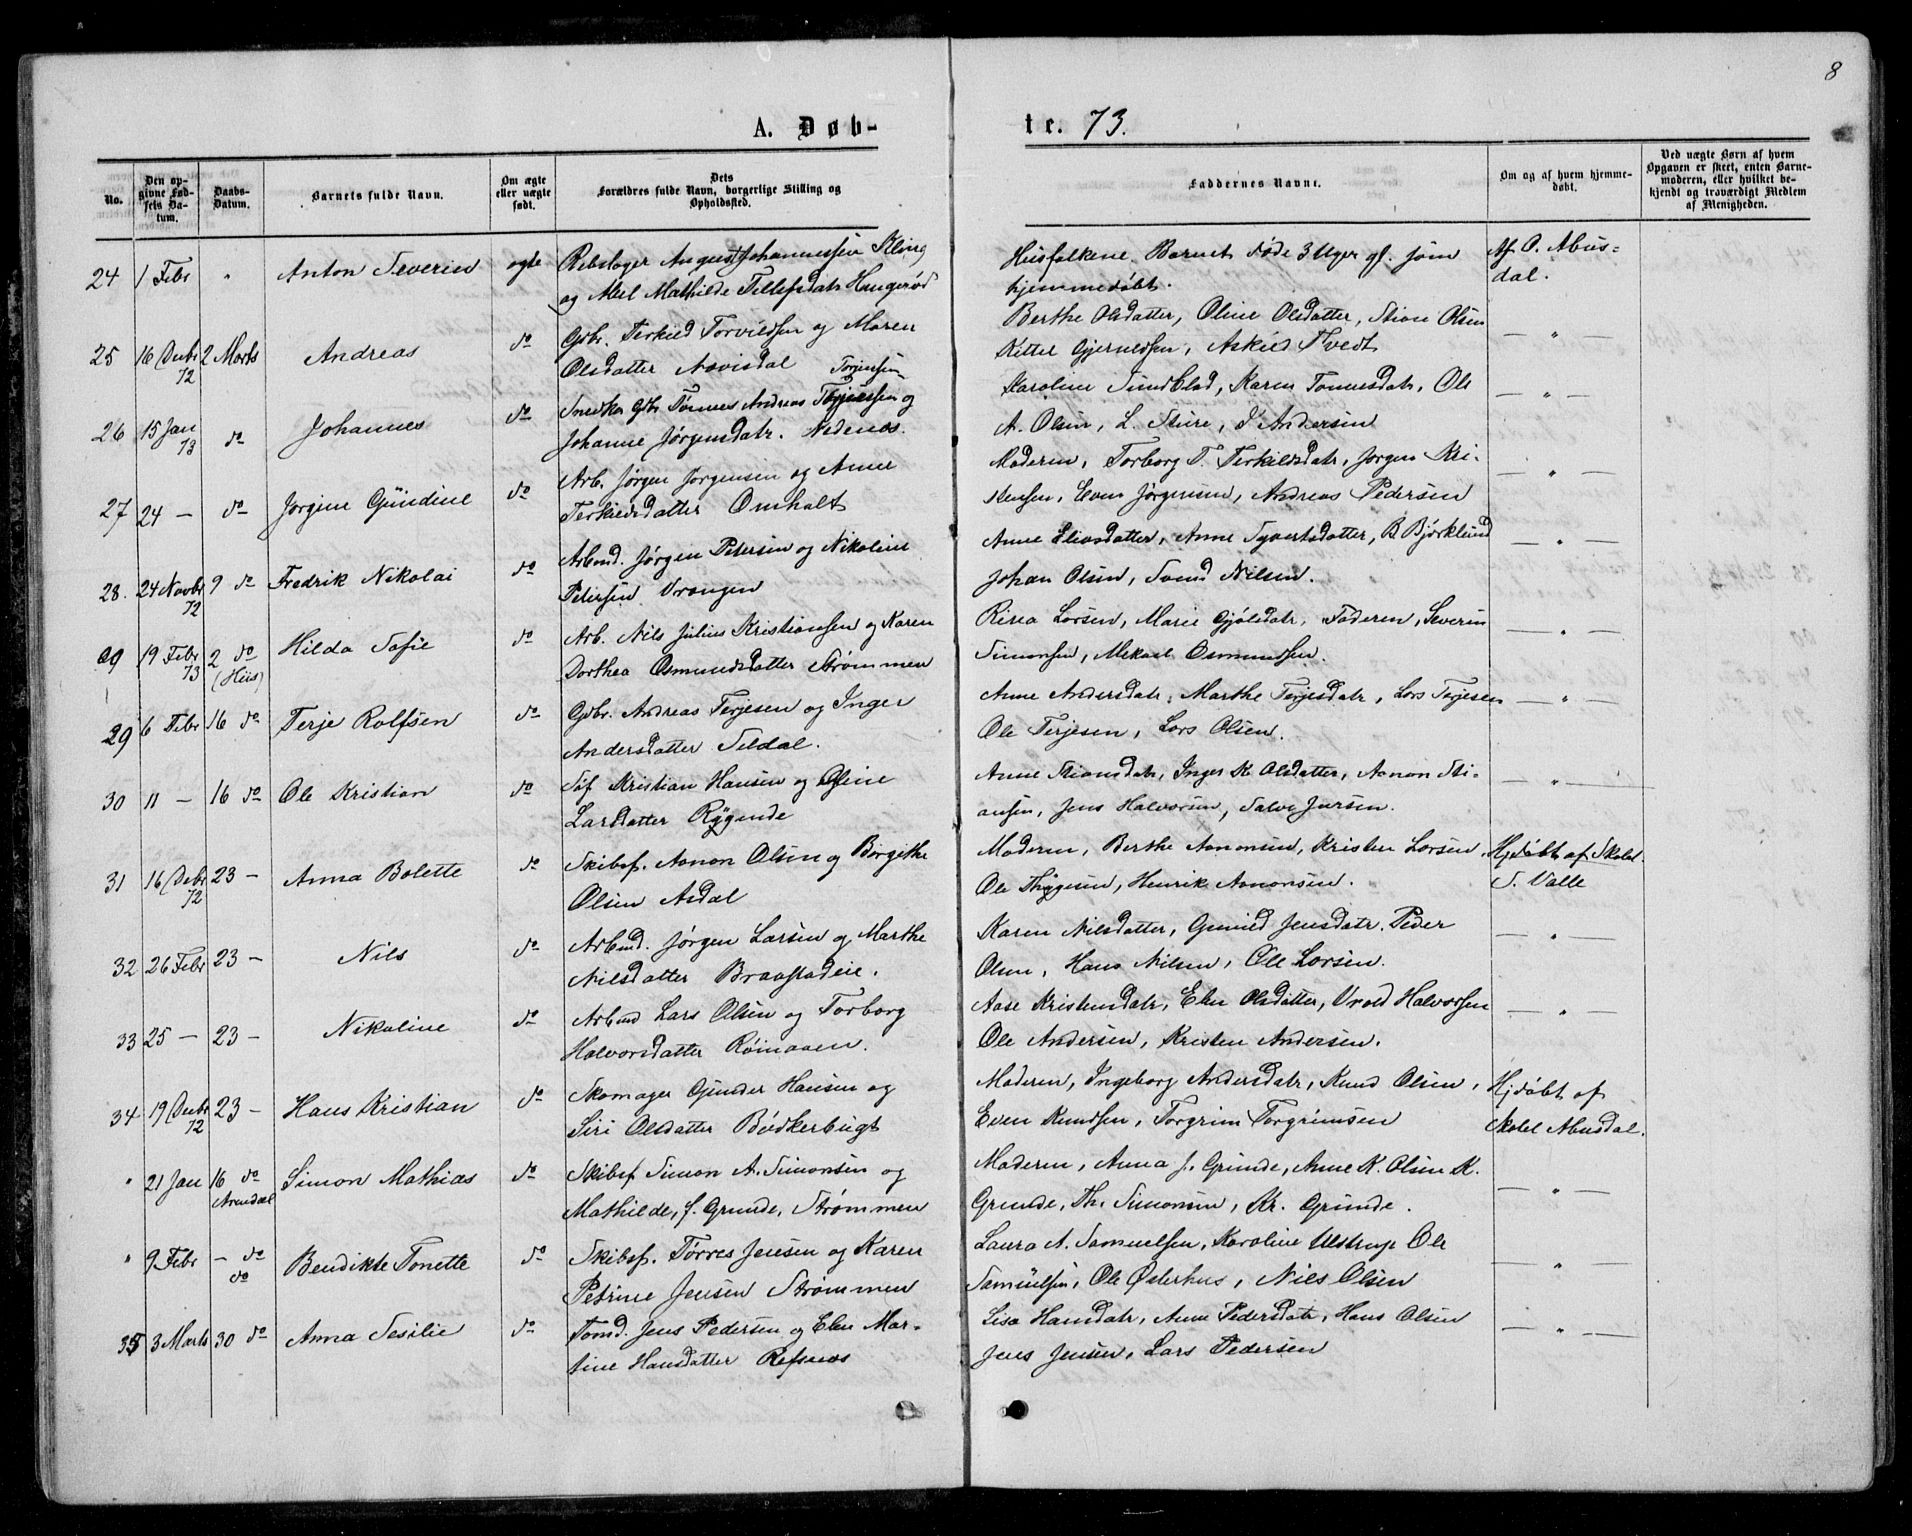 8
A. Døb-
te. 73.
No.
Den opgivne Fødsels Datum.
Daabs-Datum.
Barnets fulde Navn.
Om ægte eller uægte født.
Dets Forældres fulde Navn, borgerlige Stilling og Opholdssted.
Faddernes Navne.
Om og af hvem hjemmedøbt.
Ved uægte Børn af hvem Opgaven er skeet, enten Barnemoderen, eller hvilket bekjendt og troværdigt Medlem af Menigheden.
24 1 Febr " Anton Severin ægte Rebslager August Johannessen Kling
og Abel Mathilde Tellefsdatr Haugerød
Husfolkene, Barnet døde 3 Uger gl. som
hjemmedøbt.
Af O. Abus-
dal.
25 16 Decbr 72 2 Marts Andreas do Gbr. Terkild Torvildsen og Maren
Olsdatter Nævisdal
Berthe Olsdatter, Oline Olsdatter, Stian Olsen
Kittel Gjeruldsen, Askild Tvedt
— " —
26 15 Jan 73 do Johannes do Snedker Gbr Tønnes Andreas Terjesen og
Torjusen
Johanne Jørgensdatr. Nedenæs.
Karoline Sundblad, Karen Tønnesdatr, Ole
A. Olsen, L. Sture, J. Andersen
— " —
27 24 — do Jørgine Gundine do Arb. Jørgen Jørgensen og Anne
Terkildsdatter Omholt
Moderen, Torborg T. Terkildsdatr, Jørgen Kri-
stensen, Even Jørgensen, Andreas Pedersen
— " —
28. 24 Novbr 72 9 do Fredrik Nikolai do Arbmd. Jørgen Petersen og Nikoline
Petersen Vrangen
Anne Eliasdatter, Anne Syvertsdatter, B. Bjørklund
Johan Olsen, Svend Nilsen.
— " —
29 19 Febr 73 2 do (Hiis) Hilda Sofie do Arb. Nils Julius Kristiansen og Karen
Dorthea Osmundsdatter Strømmen
Risea Larsen, Marie Gjølsdatr, Faderen, Severin
Simonsen, Mekael Osmundsen.
— " —
29 6 Febr 16 do Terje Rolfsen do Gbr. Andreas Terjesen og Inger
Andersdatter Seldal.
Anne Andersdatr, Marthe Terjesdatr, Lars Terjesen
Ole Terjesen, Lars Olsen.
— " —
30 11 — 16 do Ole Kristian do Søf Kristian Hansen og Oline
Larsdatter Rygende
Anne Stiansdatr, Inger K. Olsdatter, Aanon Sti-
ansen, Jens Halvorsen, Salve Jursen.
— " —
31 16 Decbr 72 23 — Anna Bolette do Skibsf. Aanon Olsen og Birgithe
Olsen Asdal
Moderen, Berthe Aanonsen, Kristen Larsen,
Ole Thygesen, Henrik Aanonsen.
Hjdøbt af Skolel.
S. Valle
32 26 Febr 23 — Nils do Arbmd. Jørgen Larsen og Marthe
Nilsdatter Braastadeie.
Karen Nilsdatter, Gunild Jensdatr. Peder
Olsen, Hans Nilsen, Ole Larsen.
— " —
33 25 — 23 — Nikoline do Arbmd Lars Olsen og Torborg
Halvorsdatter Rømaaen.
Aase Kristensdatr, Elen Olsdatter, Vrold Halvorsen
Ole Andersen, Kristen Andersen.
— " —
34 19 Decbr 72 23 — Hans Kristian do Skomager Gunder Hansen og
Siri Olsdatter Bødkerbugt
Moderen, Ingeborg Andersdatr, Knud Olsen,
Even Knudsen, Torgrim Torgrimsen
Hjdøbt af
Skolel Abusdal.
" 21 Jan 16 do Arendal Simon Mathias do Skibsf Simon A. Simonsen og
Mathilde, f. Grunde, Strømmen
Moderen, Anna J. Grunde, Anne K. Olsen K.
Grunde, Th. Simonsen, Kr. Grunde.
— " —
" 9 Febr — do do Bendikte Tonette do Skibsf. Tørres Jensen og Karen
Petrine Jensen Strømmen
Laura A. Samuelsen, Karoline Ulstrup Ole
Samuelsen, Ole Østerhus, Nils Olsen
— " —
35 3 Marts 30 do Anna Sesilie do Tomd. Jens Pedersen og Elen Mar-
tine Hansdatter Refsnæs
Lisa Hansdatr, Anne Pedersdatr, Hans Olsen
Jens Jensen, Lars Pedersen
— " —